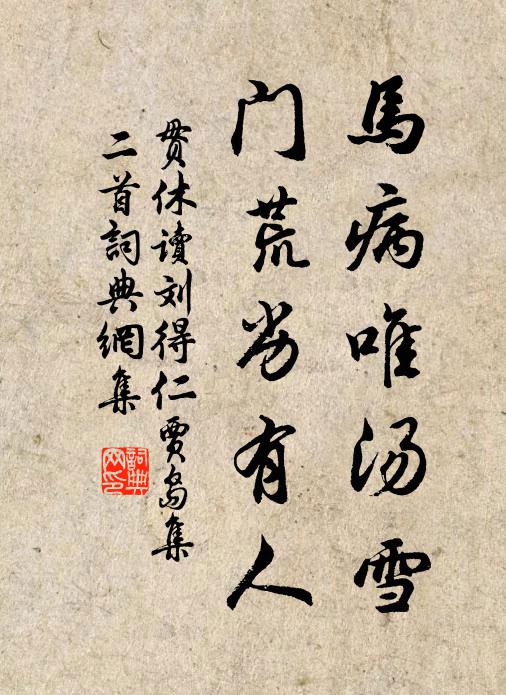 馬病唯汤雪
门荒劣有人
貫休讀刘得仁賈岛集
二首詞典網集
詞典
网印